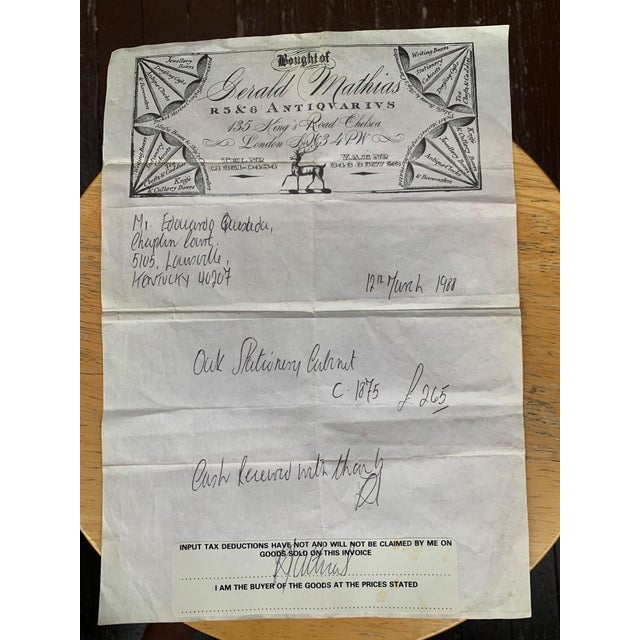 Bought of
Gerald Mathias
R5 & 6 ANTIQVARIVS
135 King's Road Chelsea
London SW3 4PW
TEL. Nº
V.A.T. Nº
Jewellery Boxes
Writing Boxes
Stationery Cabinets
Tea Chests & Caddies
Knife & Cutlery Boxes
Knife & Cutlery Boxes
& Barometers
Mr. Edouardo Quesada,
Chaplin Court,
5105, Louisville,
KENTUCKY 40207
12th March 1988
Oak Stationery Cabinet
C-1875 £265
Cash Received with thanks
INPUT TAX DEDUCTIONS HAVE NOT AND WILL NOT BE CLAIMED BY ME ON
GOODS SOLD ON THIS INVOICE
I AM THE BUYER OF THE GOODS AT THE PRICES STATED